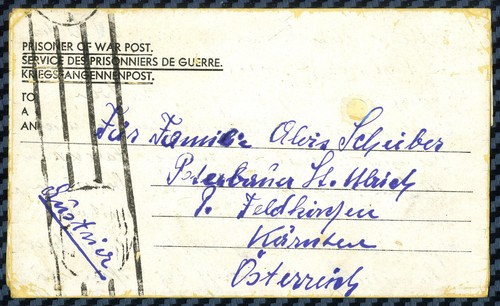 PRISONER OF WAR POST.
SERVICE DES PRISONNIERS DE GUERRE.
KRIEGSFANGENNENPOST.
TO
A
AN
Für Familie Alois Schriber
St. Ulrich
P. Feldkirchen
Kärnten
Österreich
Austria